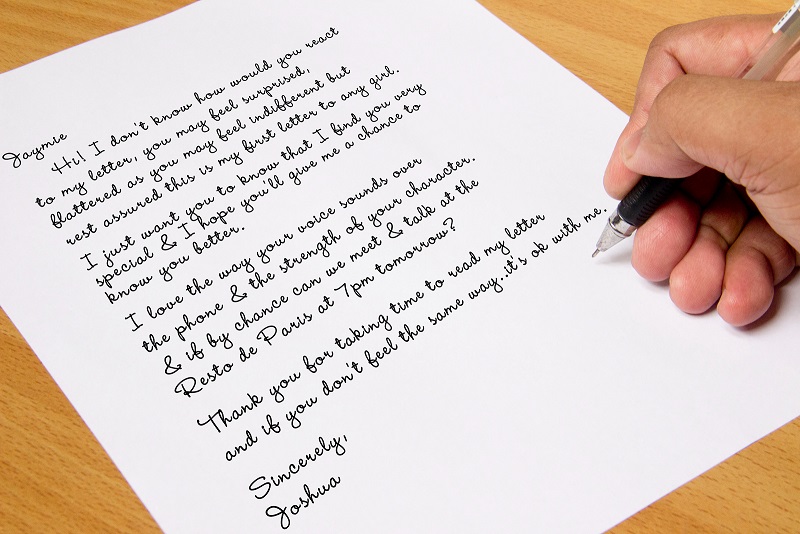 Jaymie
Hi! I don't know how would you react
to my letter, you may feel surprised,
flattered as you may feel indifferent but
rest assured this is my first letter to any girl.
I just want you to know that I find you very
special & I hope you'll give me a chance to
know you better.
I love the way your voice sounds over
the phone & the strength of your character.
& if by chance can we meet & talk at the
Resto de Paris at 7pm tomorrow?
Thank you for taking time to read my letter
and if you don't feel the same way..it's ok with me.
Sincerely,
Joshua